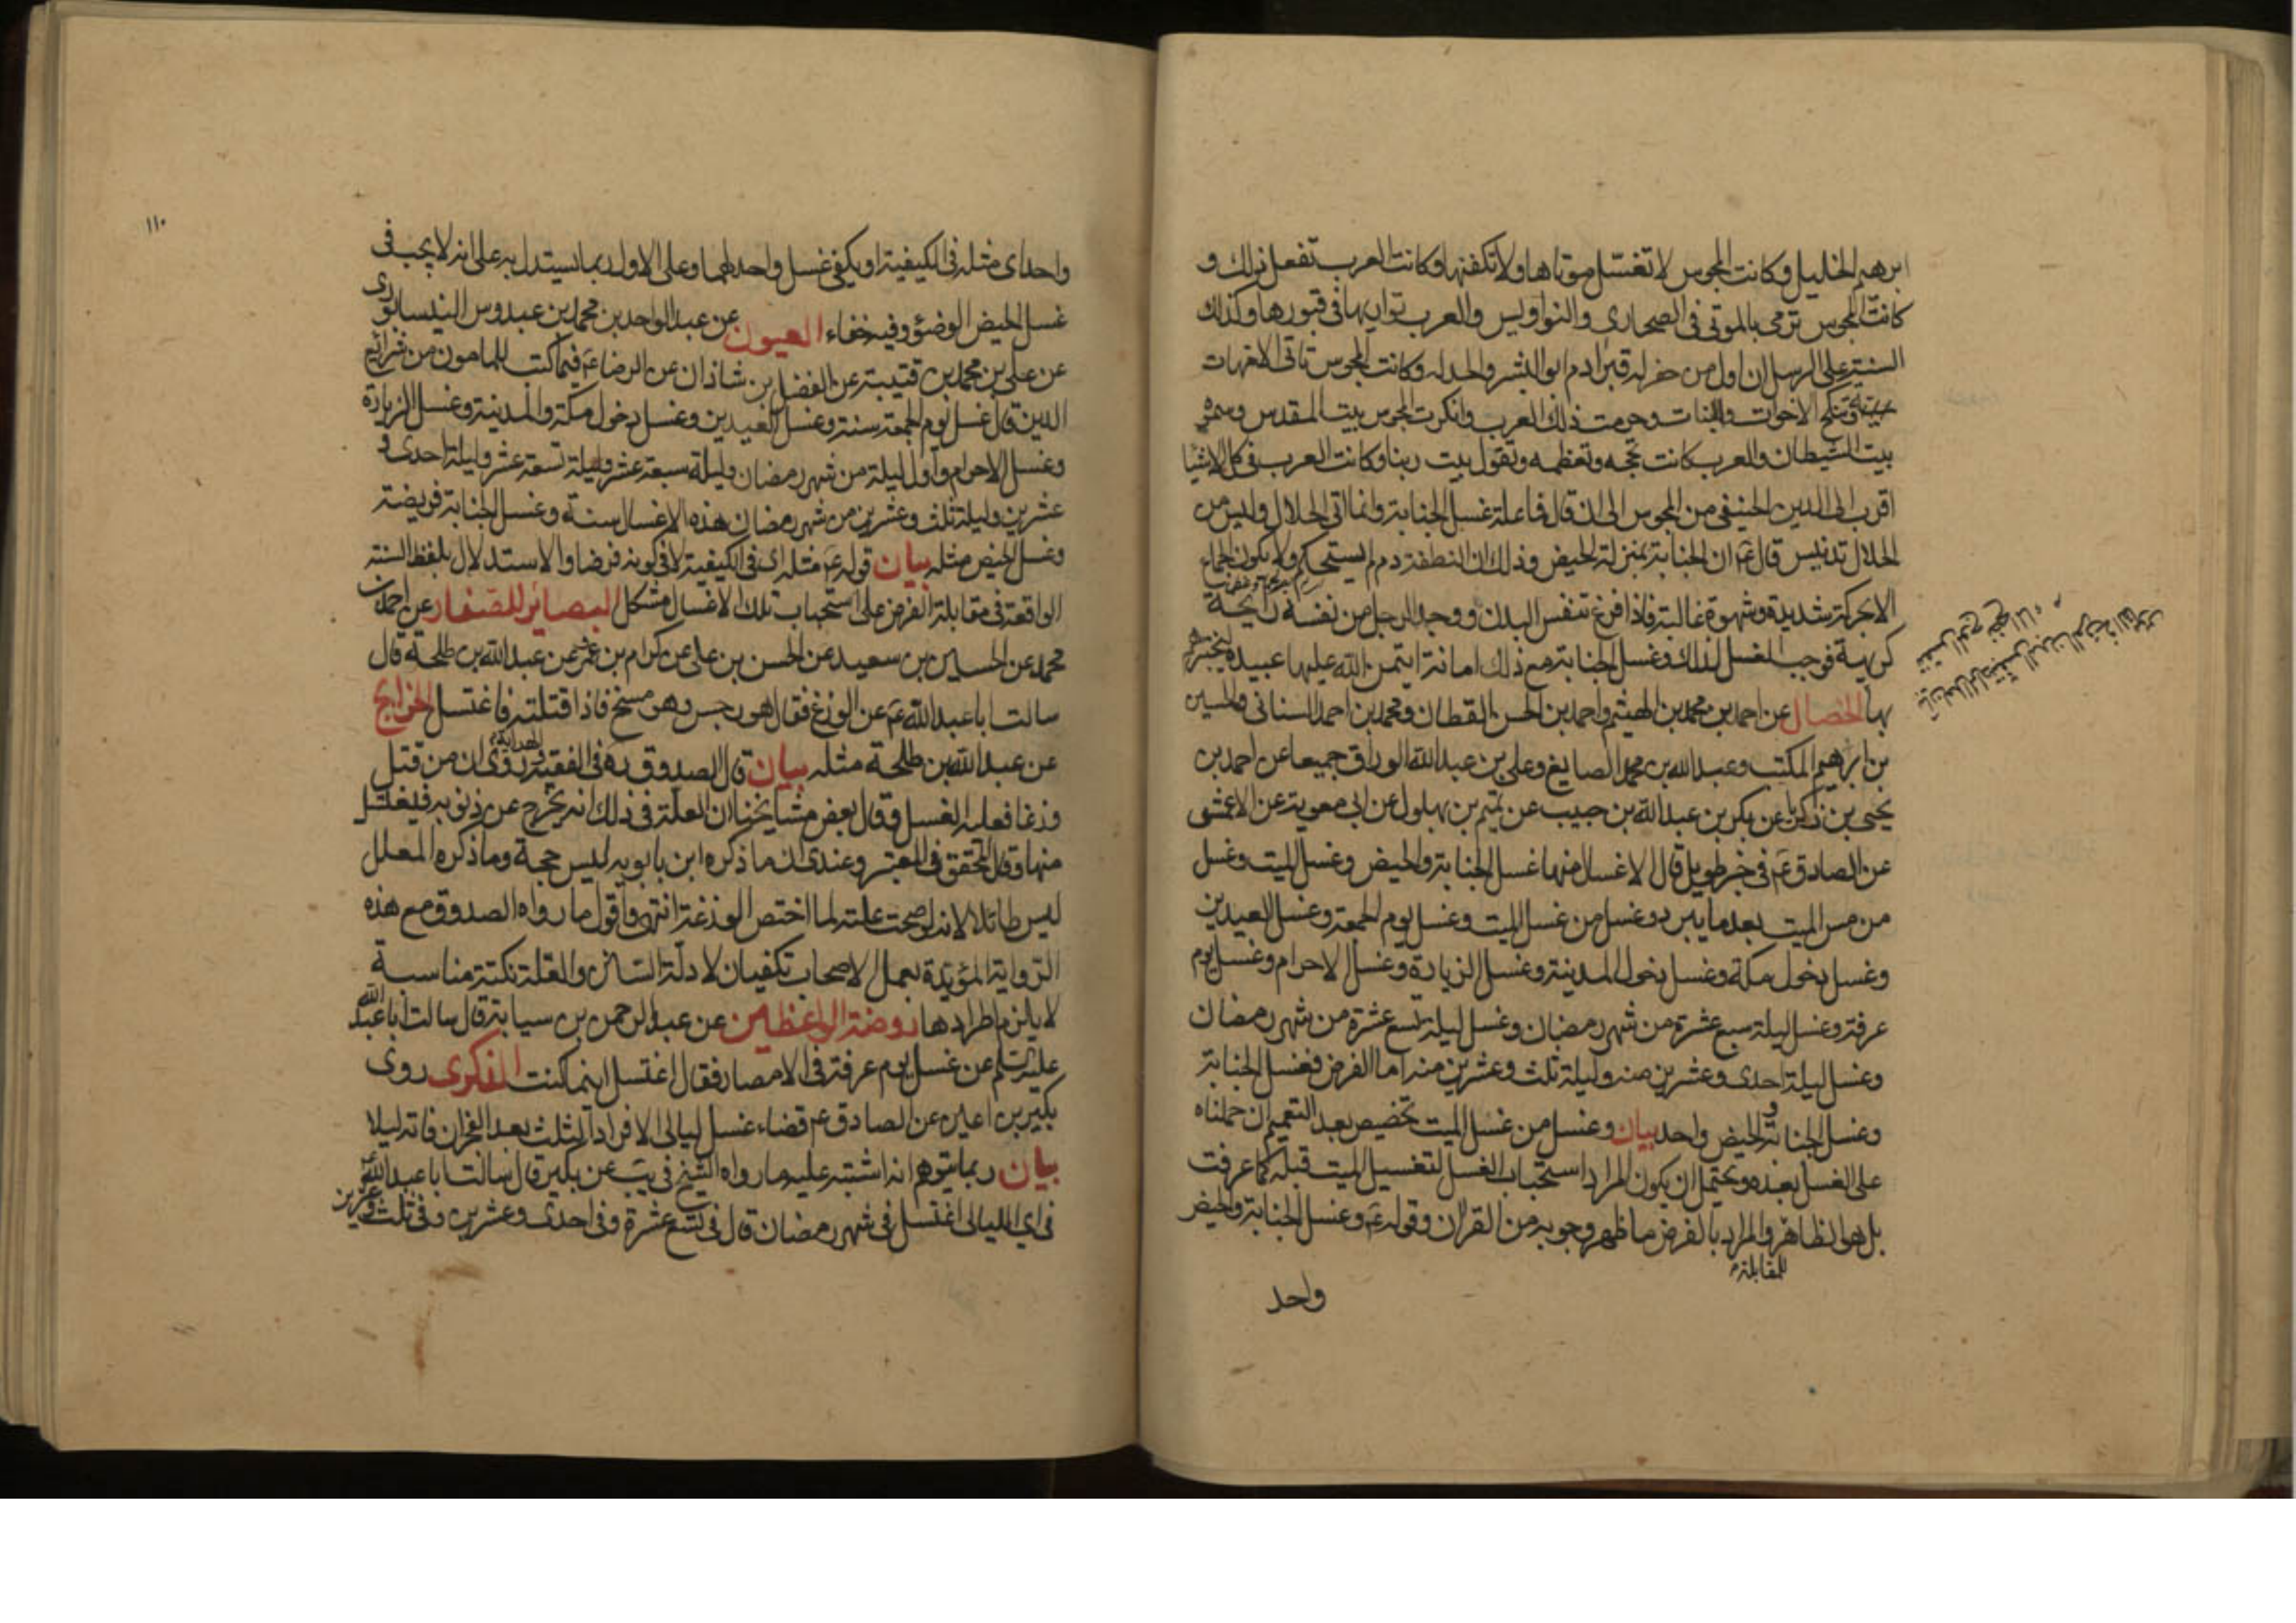 ابرهيم الخليل وكانت المجوس لا تغسل موتاها ولا تكفنها وكانت العرب تفعل ذلك و
كانت المجوس ترمي بالموتى فى الصحارى والنواويس والعرب تواريها فى قبورها وكذلك
السنة على الرسل ان اول من حفر له قبر ادم ابو البشر والحد له وكانت المجوس تاتى الامهات
وتنكح الاخوات والبنات وحرمت ذلك العرب وانكرت المجوس بيت المقدس وسمته
بيت الشيطان والعرب كانت تحجه وتعظمه وتقول بيت ربنا وكانت العرب فى كل الاشيا
اقرب الى الدين الحنيفى من المجوس الى ان قال فما علة غسل الجنابة وانما اتى الحلال وليس من
الحلال تدنيس قال عم ان الجنابة بمنزلة الحيض وذلك ان النطفة دم لم يستحكم ولا يكون الجماع
الا بحركة شديدة وشهوة غالبة فاذا فرغ تنفس البدن ووجد الرجل من نفسه رايحة
كريهة فوجب الغسل لذلك وغسل الجنابة مع ذلك امانة ايتمن الله عليها عبيده ليختبرهم
بها الخصال عن احمد بن محمد بن الهيثم واحمد بن الحسن القطان ومحمد بن احمد السنانى والحسين
بن ابرهيم المكتب وعبد الله بن محمد الصايغ وعلى بن عبد الله الوراق جميعا عن احمد بن
يحيى بن زكريا عن بكر بن عبد الله بن حبيب عن تميم بن بهلول عن ابى معوية عن الاعمش
عن الصادق عم فى خبر طويل قال الاغسال منها غسل الجنابة والحيض وغسل الميت وغسل
من مس الميت بعد ما يبرد وغسل من غسل الميت وغسل يوم الجمعة وغسل العيدين
وغسل دخول مكة وغسل دخول المدينة وغسل الزيارة وغسل الاحرام وغسل يوم
عرفة وغسل ليلة سبع عشرة من شهر رمضان وغسل ليلة تسع عشرة من شهر رمضان
وغسل ليلة احدى وعشرين منه وليلة ثلث وعشرين منه اما الفرض فغسل الجنابة
وغسل الجنابة والحيض واحد بيان وغسل من غسل الميت تخصيص بعد التعميم ان حملناه
على الغسل بعده ويحتمل ان يكون المراد استحباب الغسل لتغسيل الميت قبله كما عرفت
بل هو الظاهر والمراد بالفرض ما ظهر وجوبه من القران وقوله عم وغسل الجنابة والحيض
للمقابلة
واحد
١١٠
واحد اى مثله فى الكيفية او يكفى غسل واحد لهما وعلى الاول ربما يستدل به على انه لا يجب فى
غسل الحيض الوضوء وفيه خفاء العيون عن عبد الواحد بن محمد بن عبدوس النيسابورى
عن على بن محمد بن قتيبة عن الفضل بن شاذان عن الرضا عم فيما كتب للمامون من شرائع
الدين قال غسل يوم الجمعة سنة وغسل العيدين وغسل دخول مكة والمدينة وغسل الزيارة
وغسل الاحرام واول ليلة من شهر رمضان وليلة سبعة عشر وليلة تسعة عشر وليلة احدى و
عشرين وليلة ثلث وعشرين من شهر رمضان هذه الاغسال سنة وغسل الجنابة فريضة
وغسل الحيض مثله بيان قوله عم مثله اى فى الكيفية لا فى كونه فرضا والاستدلال بلفظ السنة
الواقعة فى مقابلة الفرض على استحباب تلك الاغسال مشكل البصائر للصفار عن احمد بن
محمد عن الحسين بن سعيد عن الحسن بن على عن كرام بن عمر عن عبد الله بن طلحة قال
سالت ابا عبد الله عم عن الوزغ فقال هو رجس وهو مسخ فاذا قتلته فاغتسل الخرايج
عن عبد الله بن طلحة مثله بيان قال الصدوق ره فى الفقيه والهداية روى ان من قتل
وزغا فعليه الغسل وقال بعض مشايخنا ان العلة فى ذلك انه يخرج عن ذنوبه فيغتسل
منها وقال المحقق فى المعتبر وعندى ان ما ذكره ابن بابويه ليس حجة وما ذكره المعلل
ليس طائلا لانه لو صحت علته لما اختص الوزغة انتهى واقول ما رواه الصدوق مع هذه
الرواية المؤيدة بعمل الاصحاب تكفيان لادلة السنن والعلة نكتة مناسبة
لا يلزم اطرادها روضة الواعظين عن عبد الرحمن بن سيابة قال سالت ابا عبد الله
عليه السلم عن غسل يوم عرفة فى الامصار فقال اغتسل اينما كنت الذكرى روى
بكير بن اعين عن الصادق عم قضاء غسل ليالى الافراد الثلث بعد الفجر ان فاته ليلا
بيان ربما يتوهم انه اشتبه عليه ما رواه الشيخ فى يب عن بكير قال سالت ابا عبد الله عم
فى اى الليالى اغتسل فى شهر رمضان قال فى تسع عشرة وفى احدى وعشرين وفى ثلث وعشرين